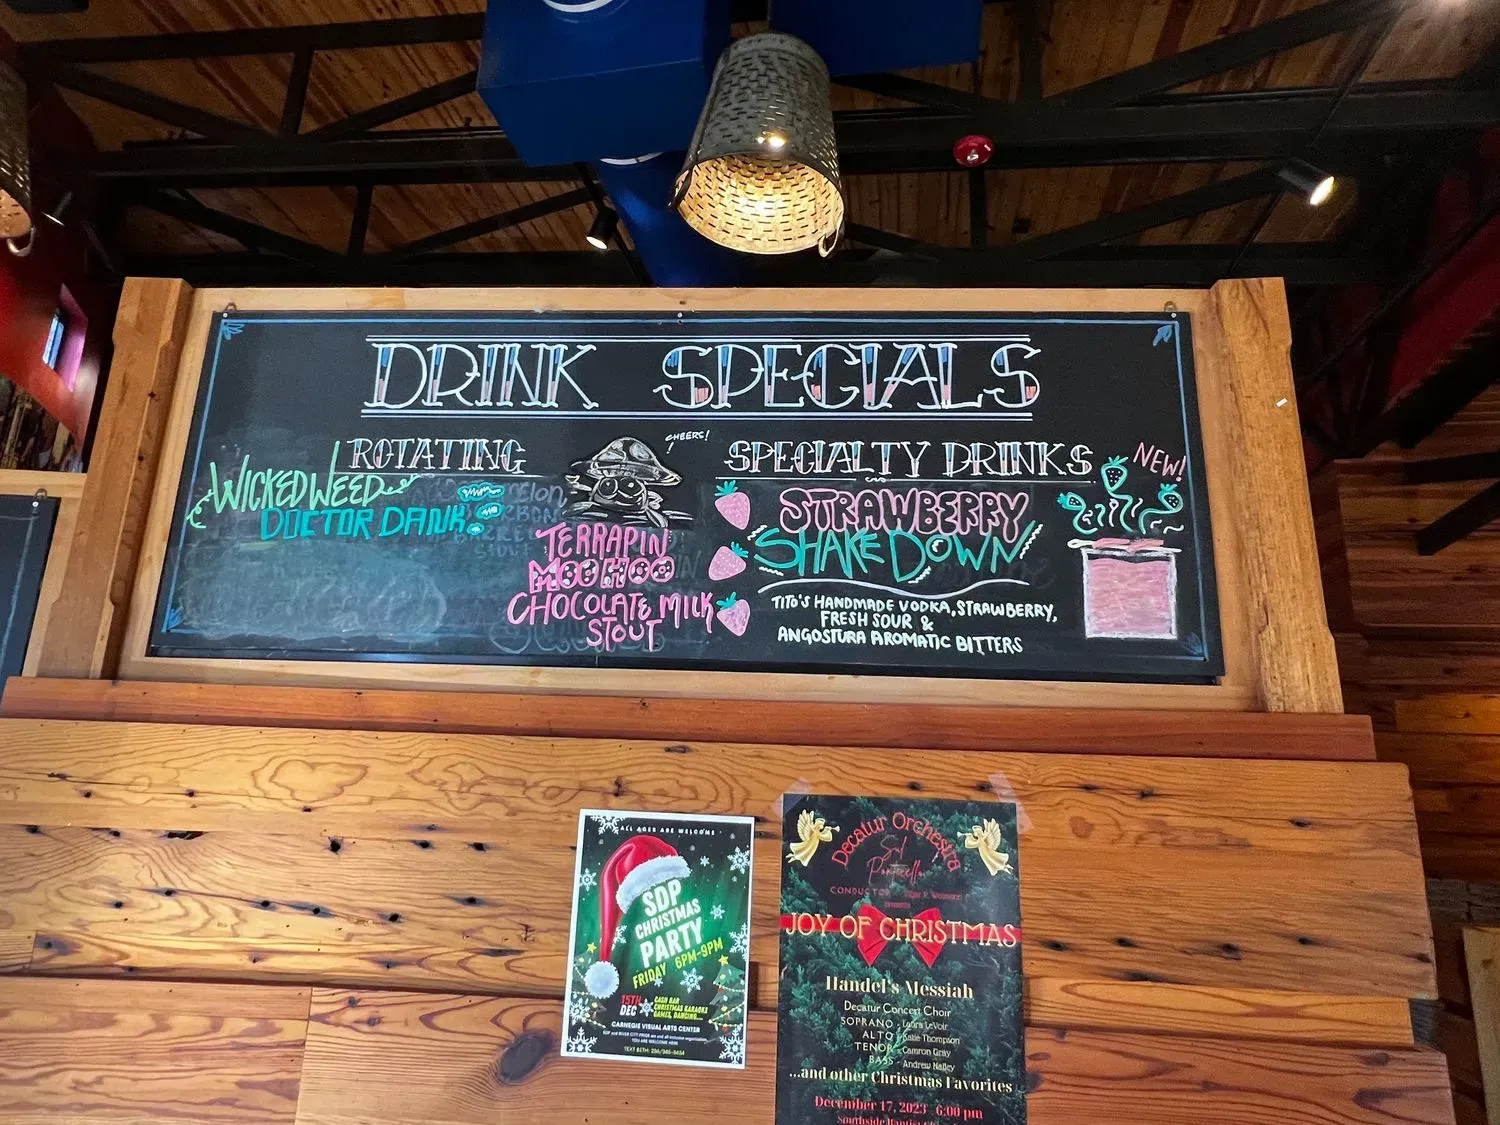 DRINK SPECIALS
ROTATING
WICKED WEED
DOCTOR DANK
CHEERS!
TERRAPIN
MOO HOO
CHOCOLATE MILK
STOUT
SPECIALTY DRINKS
NEW!
STRAWBERRY
SHAKE DOWN
TITO'S HANDMADE VODKA, STRAWBERRY,
FRESH SOUR &
ANGOSTURA AROMATIC BITTERS
ALL AGES ARE WELCOME
SDP
CHRISTMAS
PARTY
FRIDAY 6PM-9PM
15TH
DEC
CASH BAR
CHRISTMAS KARAOKE
GAMES, DANCING...
CARNEGIE VISUAL ARTS CENTER
YOU ARE WELCOME HERE
Decatur Orchestra
Sul
Ponticello
CONDUCTOR
presents
JOY OF CHRISTMAS
Handel's Messiah
Decatur Concert Choir
SOPRANO - Laura LeVoir
ALTO - Katie Thompson
TENOR - Camron Gray
BASS - Andrew Nalley
...and other Christmas Favorites
December 17, 2023 6:00 pm
Southside Baptist